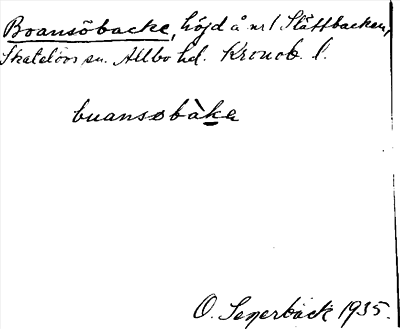 Boansöbacke, höjd å nr 1 Slättbacken,
Skatelövs sn. Allbo hd. Kronob. l.
buansobàka
O. Senerbäck 1935.